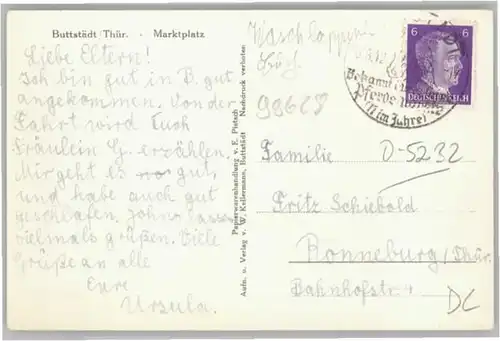 Buttstädt Thür. · Marktplatz
Liebe Eltern!
Ich bin gut in B. gut
angekommen. Von der
Fahrt wird Euch
Fräulein G. erzählen.
Mir geht es gut,
und habe auch gut
geschlafen. John's lassen
vielmals grüßen. Viele
Grüße an alle
Eure
Ursula.
Papierwarenhandlung v. E. Pietsch
Aufn. u. Verlag v. W. Kellermann, Buttstädt Nachdruck verboten
Waschlappen
99628
Bekannt
Pferde
im Jahre!
6 6
DEUTSCHES REICH
Familie D-5232
Fritz Schiebold
Ronneburg/Thür.
Bahnhofstr. 4
DC